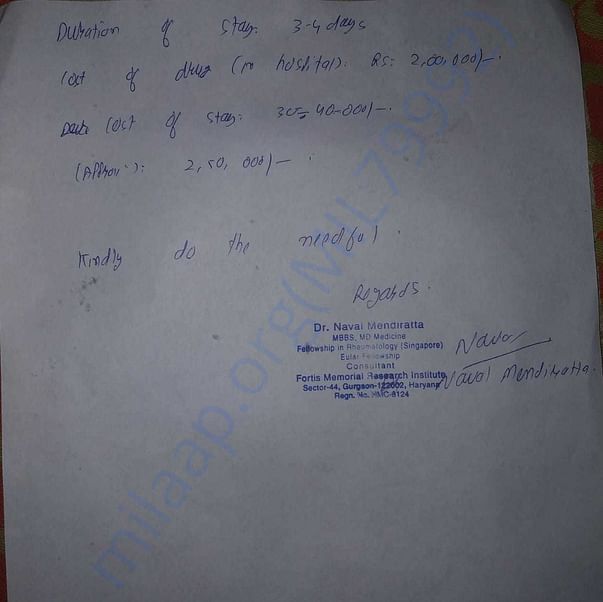 Duration of stay: 3-4 days
Cost of drug (in hospital): RS: 2,00,000/-.
Cost of stay: 30-40,000/-.
(Approx): 2,50,000/-
Kindly do the needful.
Regards.
Dr. Naval Mendiratta
MBBS, MD Medicine
Fellowship in Rheumatology (Singapore)
Eular Fellowship
Consultant
Fortis Memorial Research Institute
Sector-44, Gurgaon-122002, Haryana
Regn. No. HMC-8124
Naval
Naval Mendiratta.
milaap.org(MIL79992)